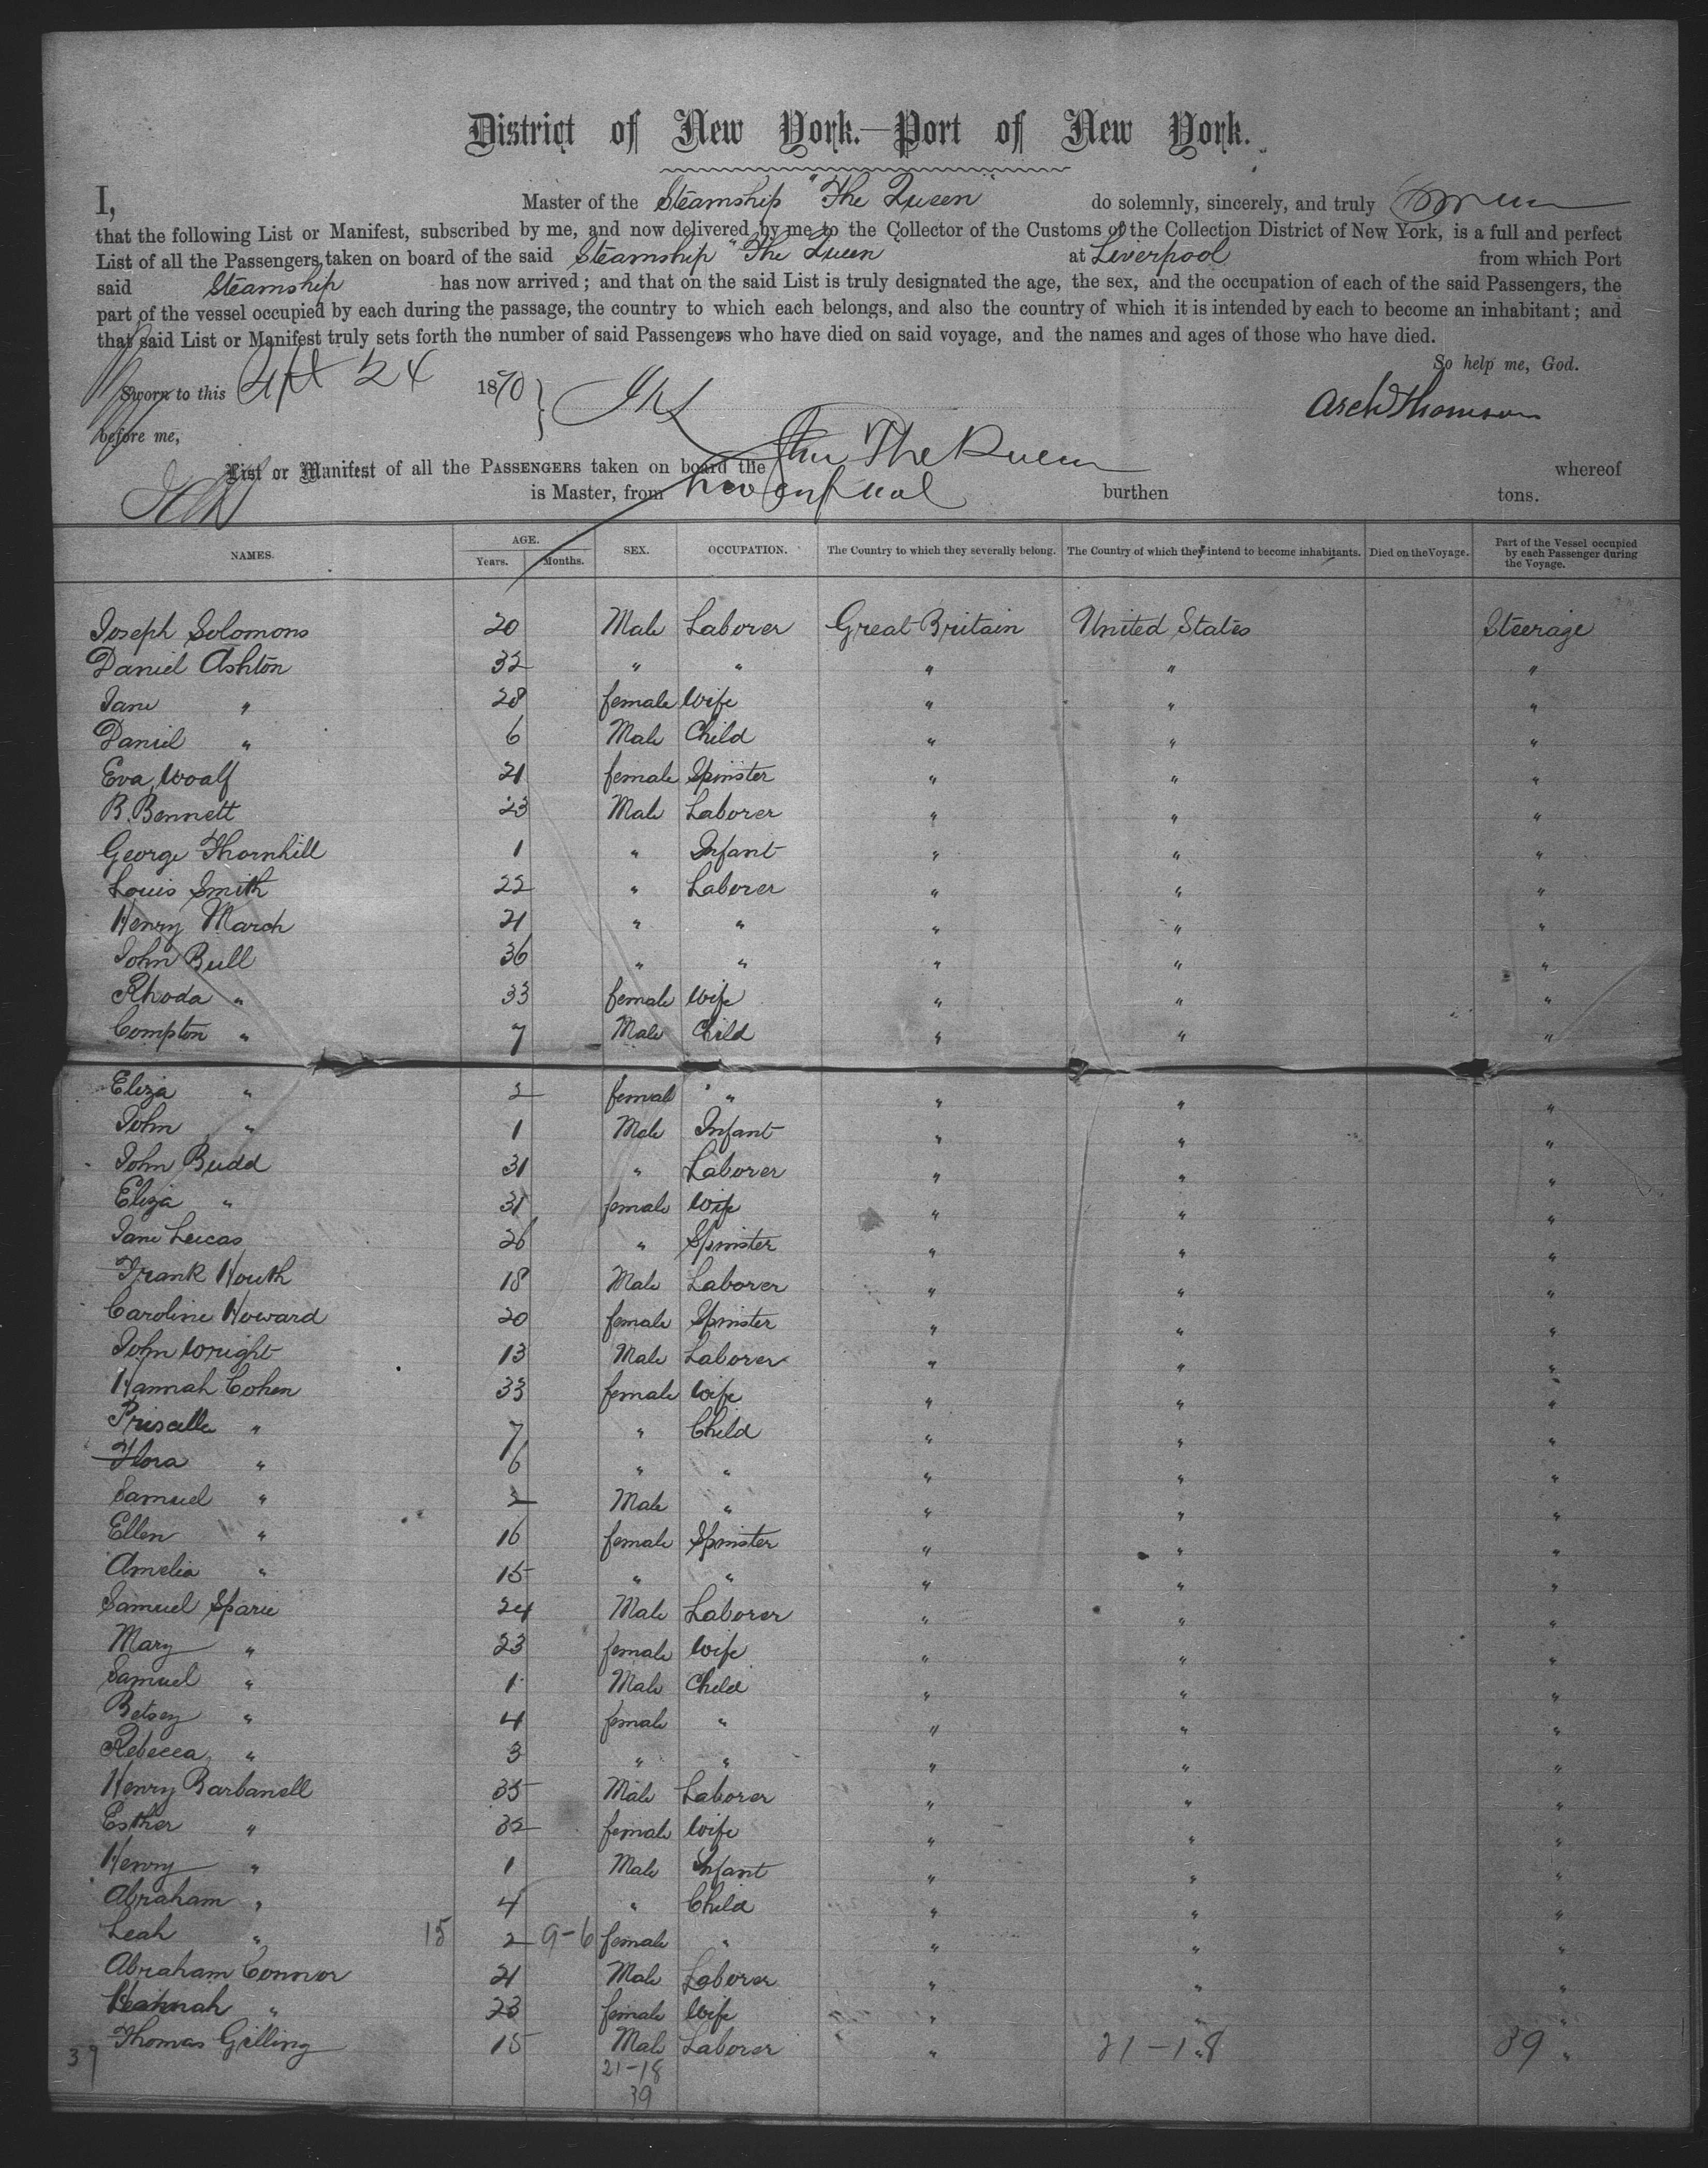 District of New York.—Port of New York.
I, Master of the Steamship "The Queen" do solemnly, sincerely, and truly
that the following List or Manifest, subscribed by me, and now delivered by me to the Collector of the Customs of the Collection District of New York, is a full and perfect
List of all the Passengers taken on board of the said Steamship "The Queen at Liverpool from which Port
said Steamship has now arrived; and that on the said List is truly designated the age, the sex, and the occupation of each of the said Passengers, the
part of the vessel occupied by each during the passage, the country to which each belongs, and also the country of which it is intended by each to become an inhabitant; and
that said List or Manifest truly sets forth the number of said Passengers who have died on said voyage, and the names and ages of those who have died.
So help me, God.
Sworn to this 24 1870 }
Arch Thomson
before me,
List or Manifest of all the PASSENGERS taken on board the The Queen whereof
is Master, from Liverpool burthen tons.
NAMES. AGE. Years. Months. SEX. OCCUPATION. The Country to which they severally belong. The Country of which they intend to become inhabitants. Died on the Voyage. Part of the Vessel occupied by each Passenger during the Voyage.
Joseph Solomons 20 Male Laborer Great Britain United States Steerage
Daniel Ashton 32 " " " " "
Jane " 28 female Wife " " "
Daniel " 6 Male Child " " "
Eva Woalf 21 female Spinster " " "
B. Bennett 23 Male Laborer " " "
George Thornhill 1 " Infant " " "
Louis Smith 22 " Laborer " " "
Henry March 21 " " " " "
John Bull 36 " " " " "
Rhoda " 33 female Wife " " "
Compton " 7 Male Child " " "
Eliza " 2 femal " " " "
John " 1 Male Infant " " "
John Budd 31 " Laborer " " "
Eliza " 31 female Wife " " "
Jane Lucas 26 " Spinster " " "
Frank Houth 18 Male Laborer " " "
Caroline Howard 20 female Spinster " " "
John Wright 13 Male Laborer " " "
Hannah Cohen 33 female Wife " " "
Priscilla " 7 " Child " " "
Flora " 6 " " " " "
Samuel " 2 Male " " " "
Ellen " 16 female Spinster " " "
Amelia " 15 " " " " "
Samuel Sparie 24 Male Laborer " " "
Mary " 23 female Wife " " "
Samuel " 1 Male Child " " "
Betsey " 4 female " " " "
Rebecca " 3 " " " " "
Henry Barbanell 35 Male Laborer " " "
Esther " 32 female Wife " " "
Henry " 1 Male Infant " " "
Abraham " 4 " Child " " "
Leah " 15 2 9-6 female " " " "
Abraham Connor 21 Male Laborer " " "
Hannah " 23 female Wife " " "
Thomas Gilling 15 Male Laborer " " "
39 21-18 21-18 39
39